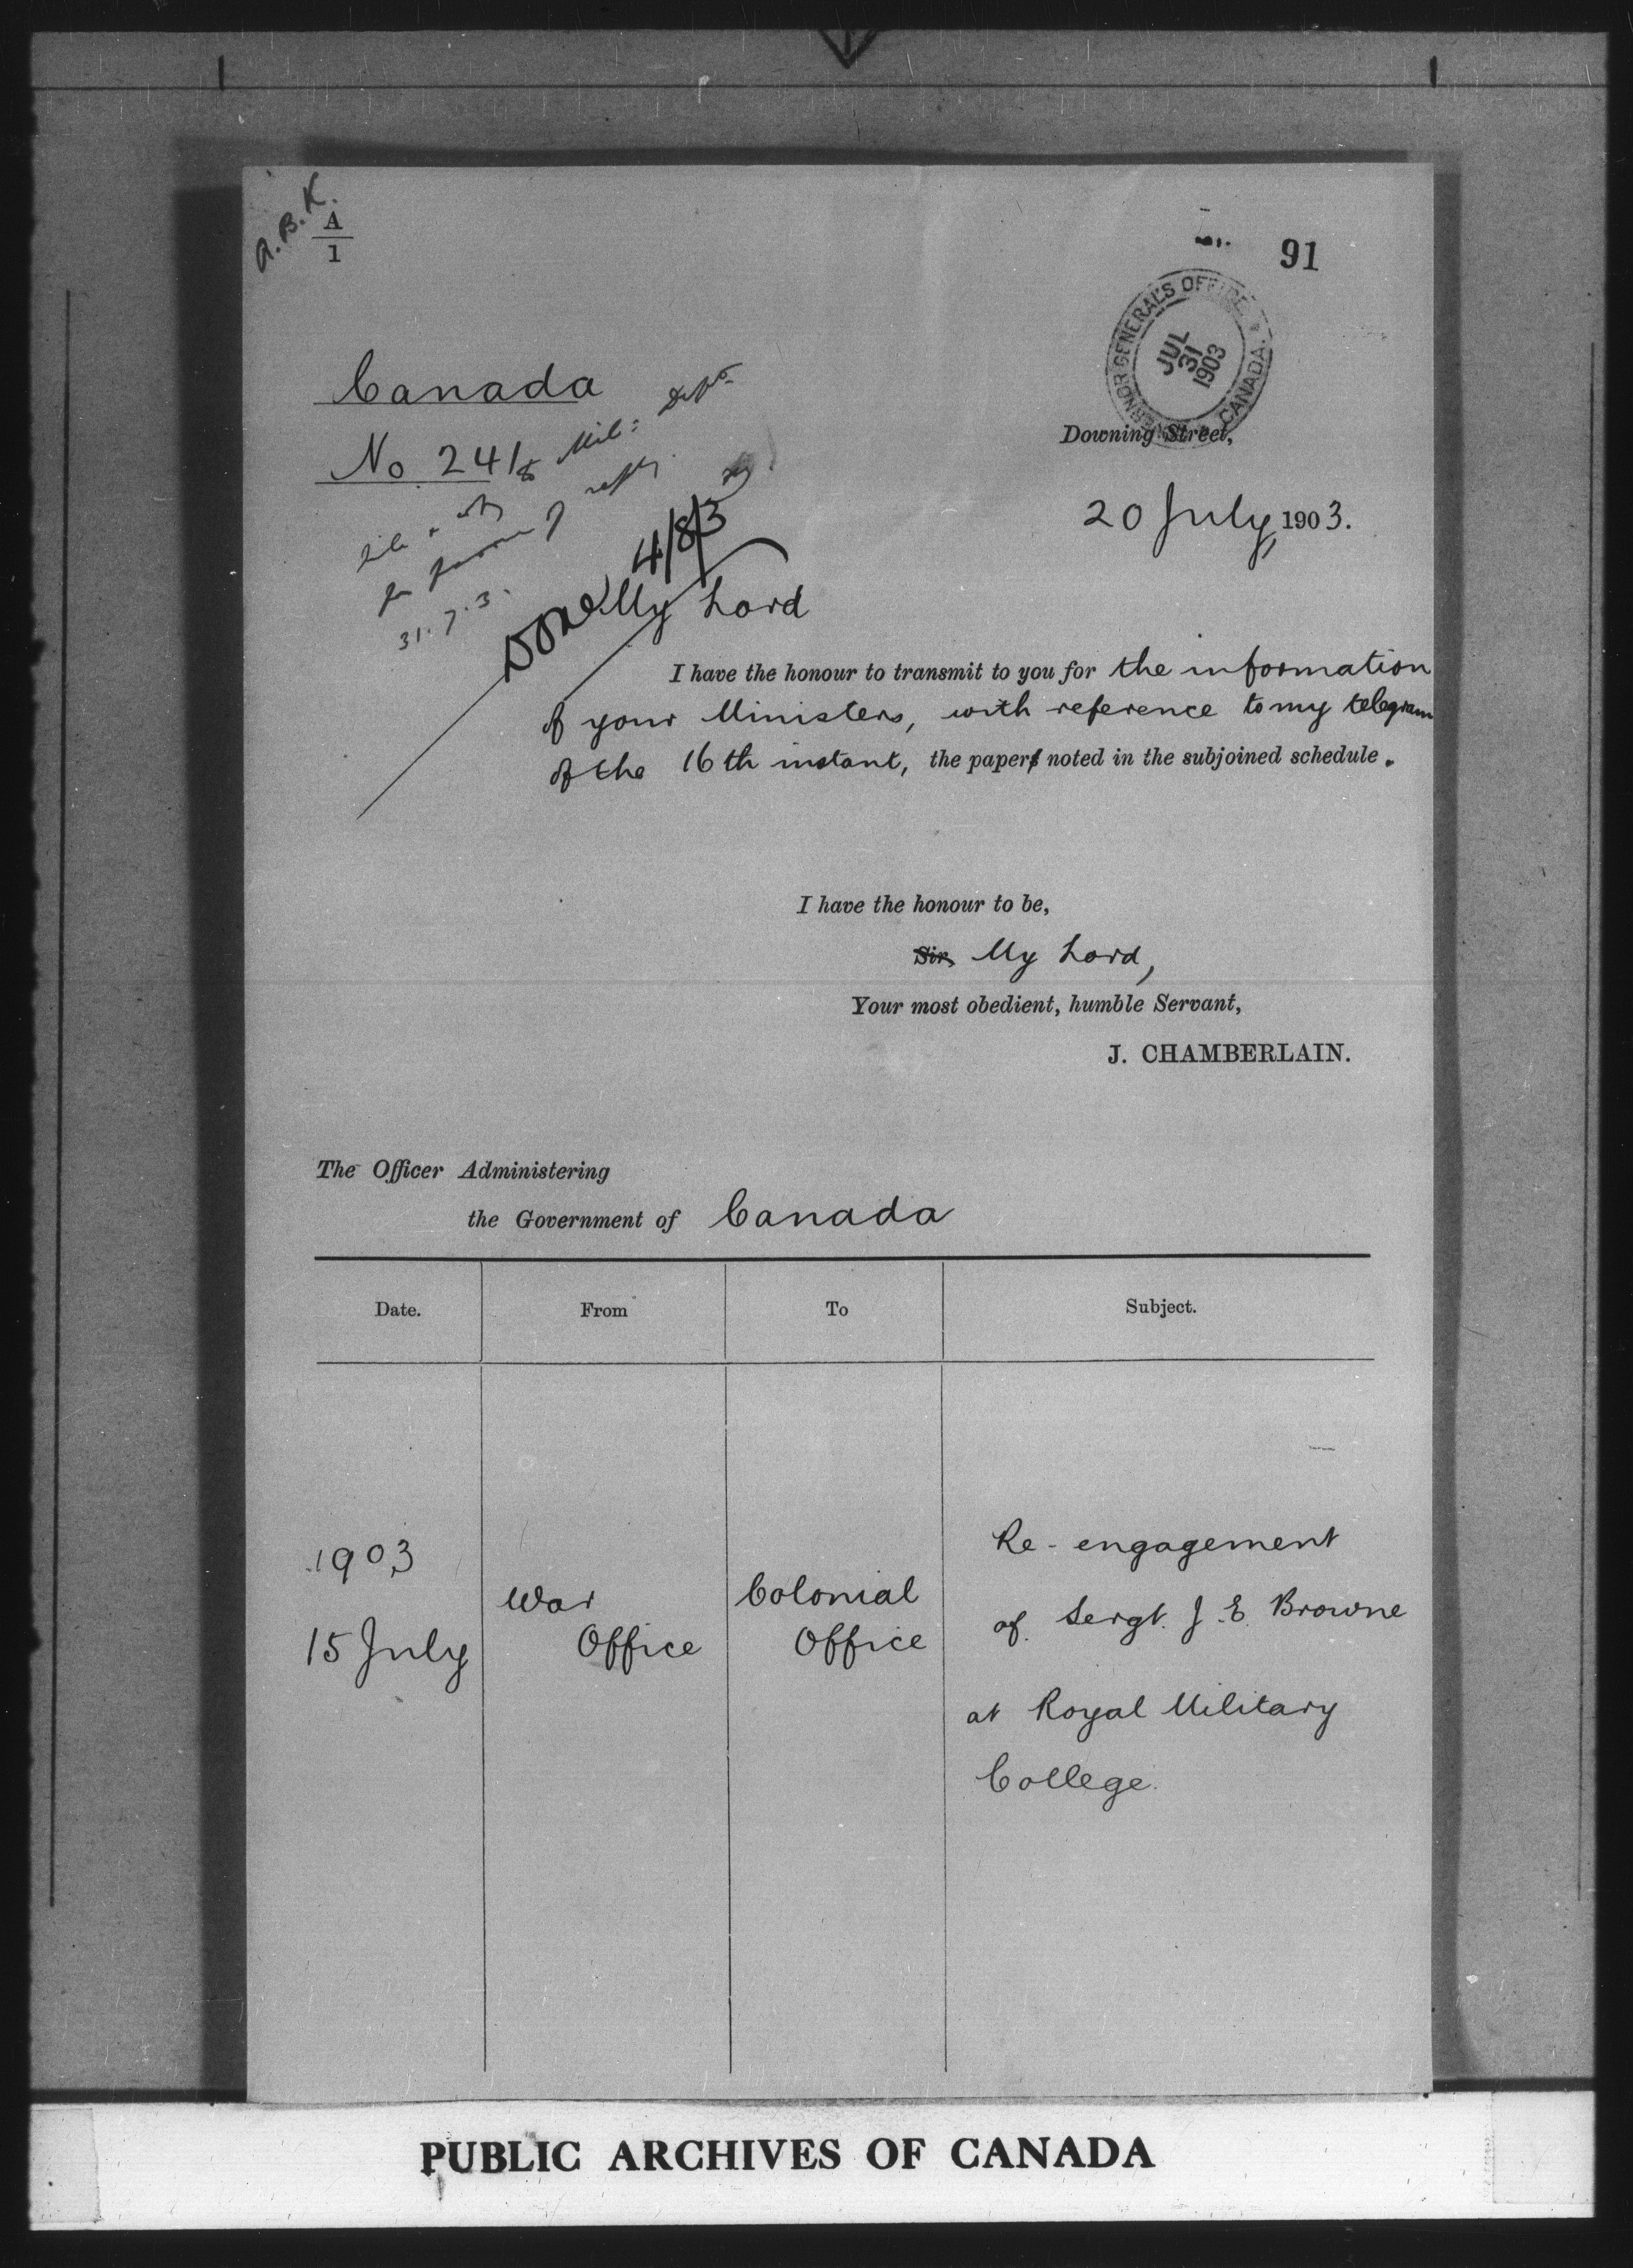 A.B.K.
A
1
91
GOVERNOR GENERAL'S OFFICE
CANADA.
JUL
31
1903
Canada
No 241
to Mil: Dept
31.7.3.
Done 4/8/3
Downing Street,
20 July, 1903.
My Lord
I have the honour to transmit to you for the information
of your Ministers, with reference to my telegram
of the 16th instant, the paper noted in the subjoined schedule.
I have the honour to be,
Sir, My Lord,
Your most obedient, humble Servant,
J. CHAMBERLAIN.
The Officer Administering
the Government of Canada
Date. From To Subject.
1903
15 July
War
Office
Colonial
Office
Re-engagement
of Sergt. J E Browne
at Royal Military
College.
PUBLIC ARCHIVES OF CANADA